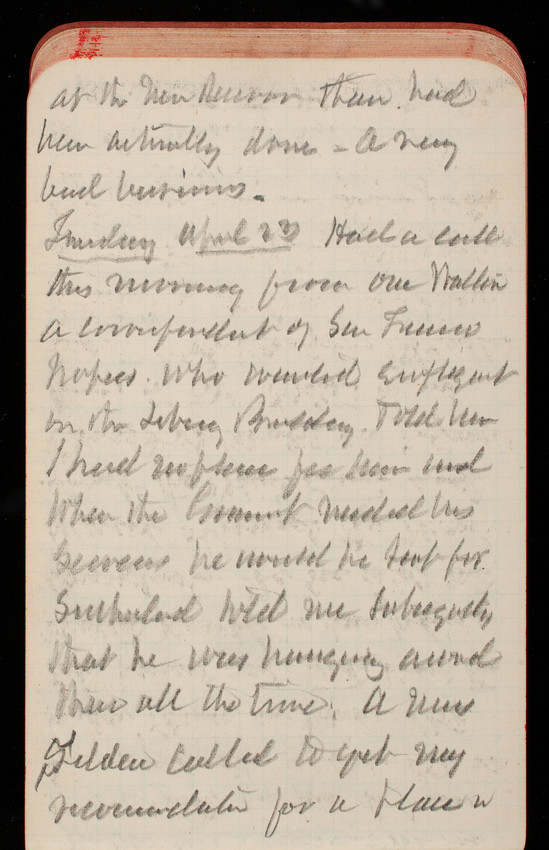 at the New Reservoir than had
been actually done - A very
bad business.
Tuesday April 23 Had a call
this morning from one Walker
a correspondent of San Francisco
Papers who wanted employment
on the Library Building. Told him
I had no place for him and
When the Government needed his
Services he would be sent for.
Sutherland told me subsequently
that he was hanging around
there all the time. A Miss
Tilden called to get my
recommendation for a place in